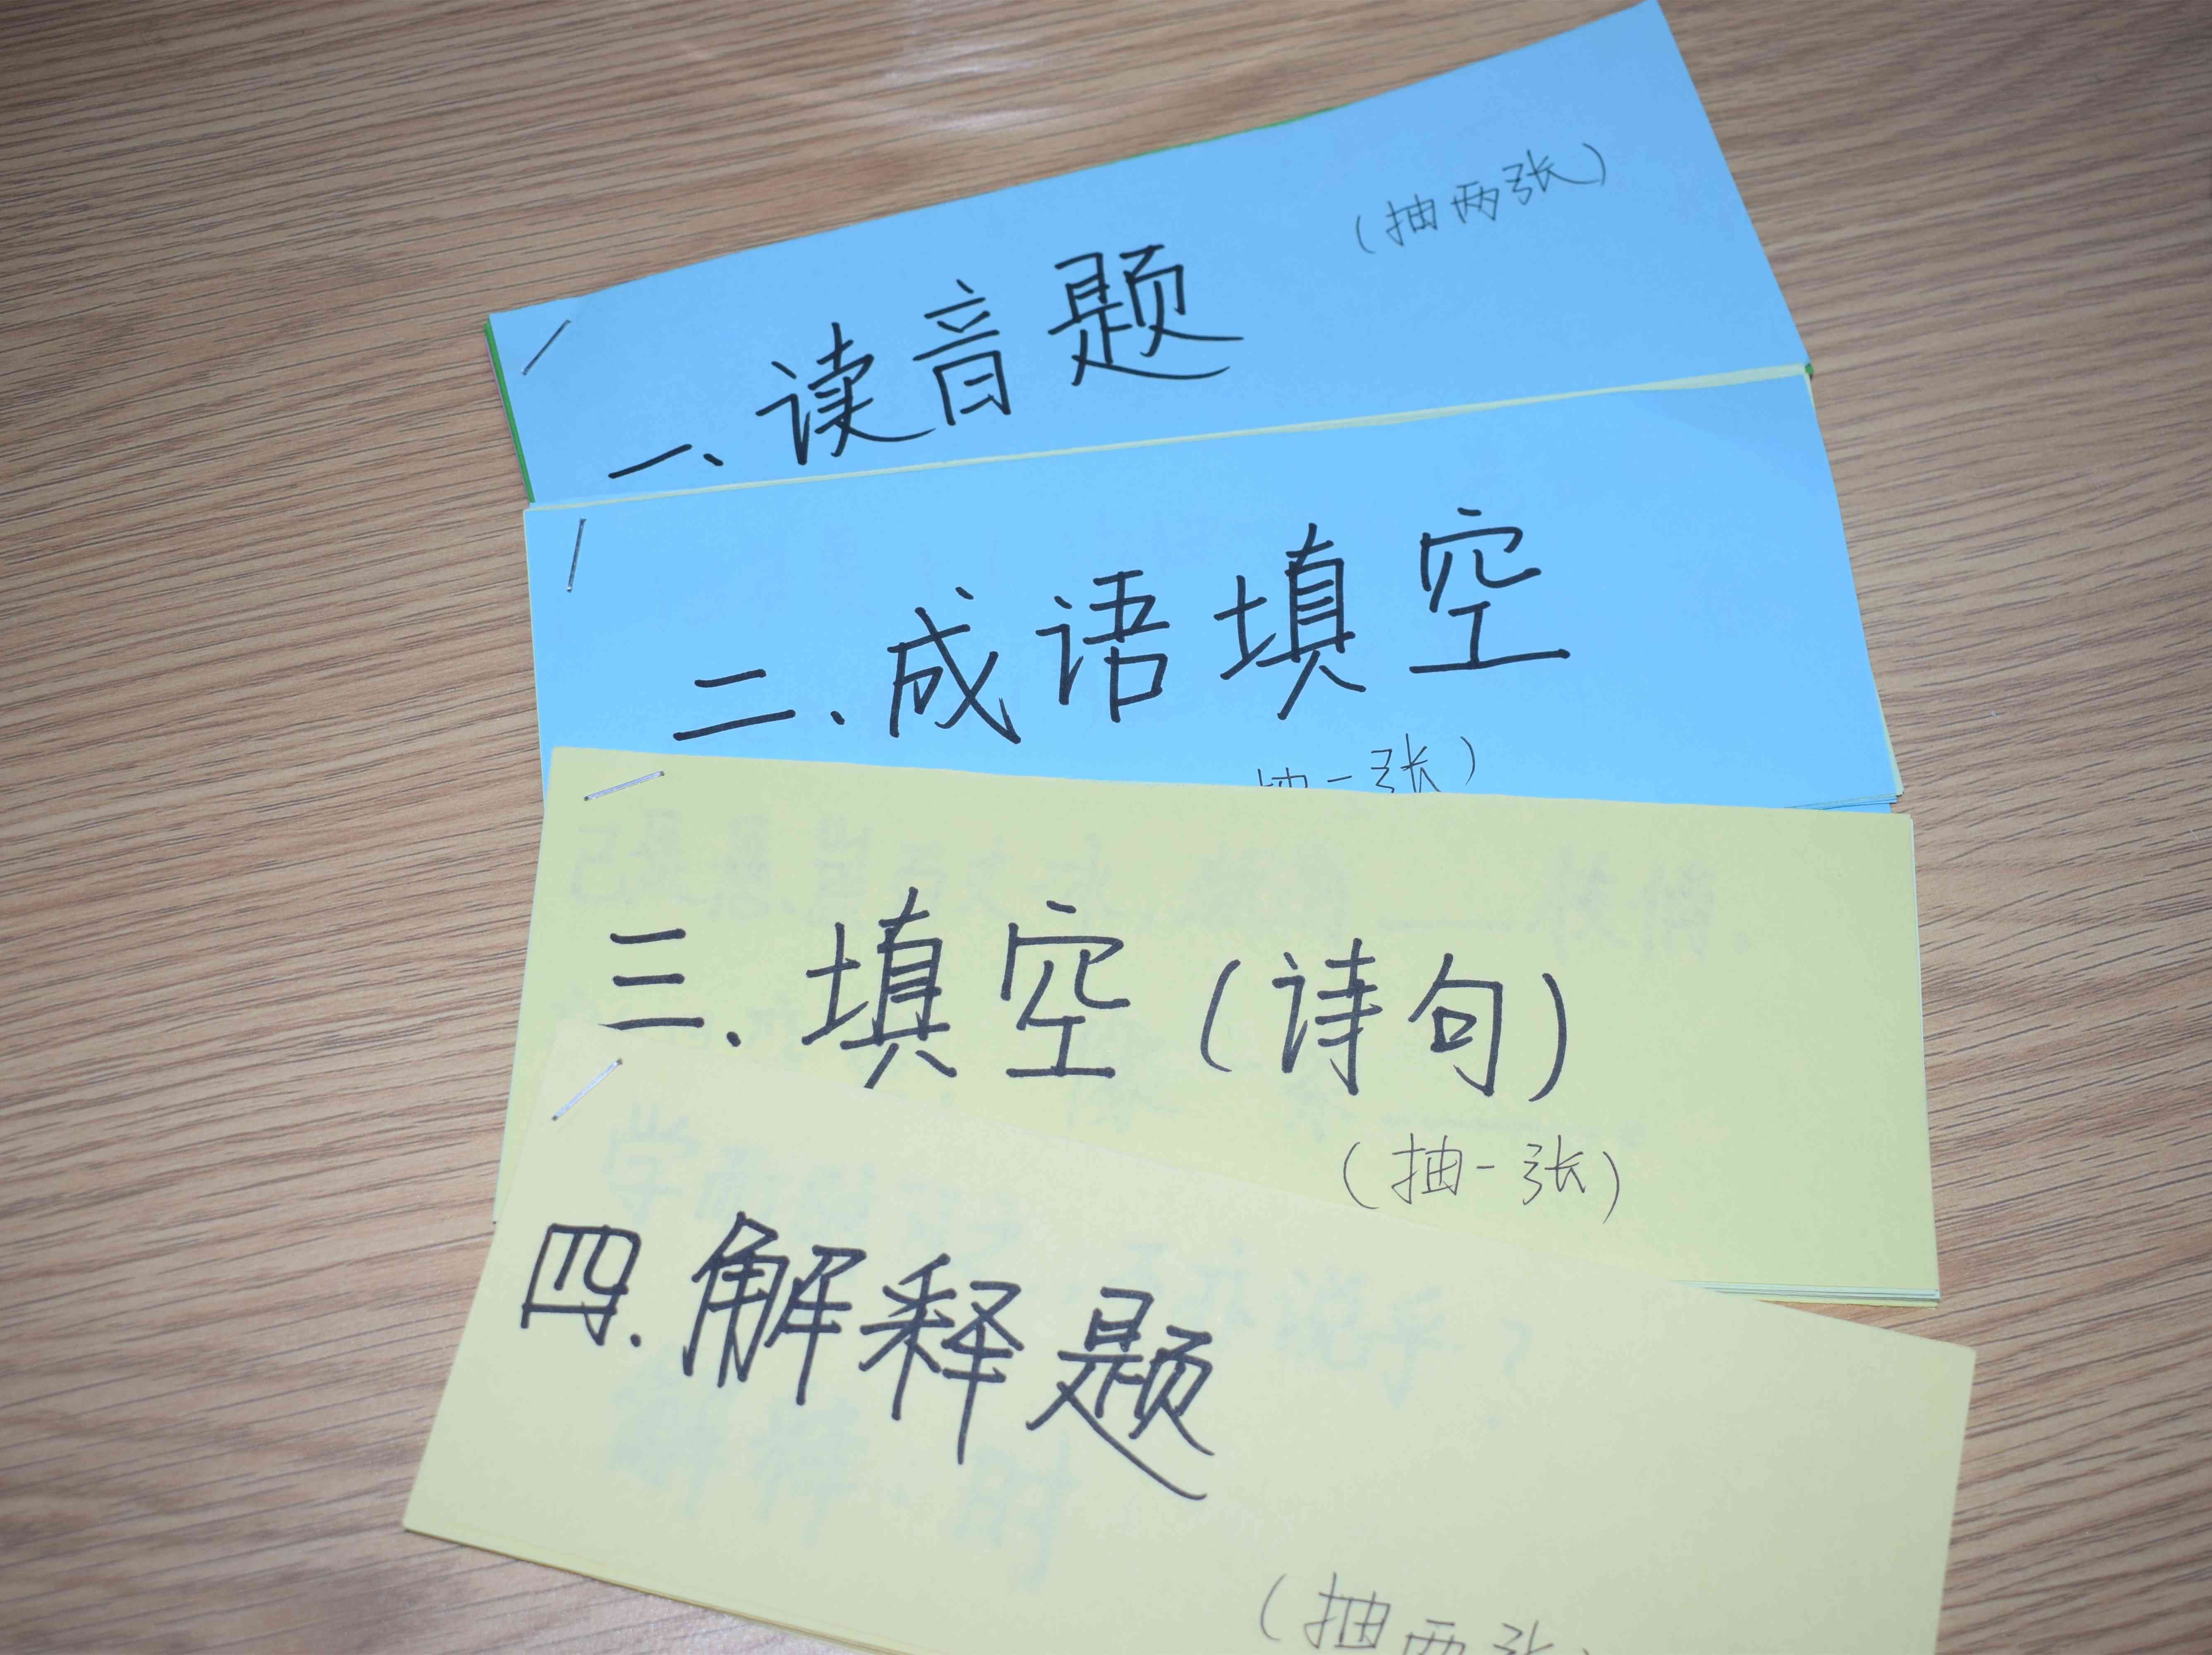 (抽两张)
一、读音题
二、成语填空
抽一张)
三、填空(诗句)
(抽一张)
四、解释题
(抽两张)